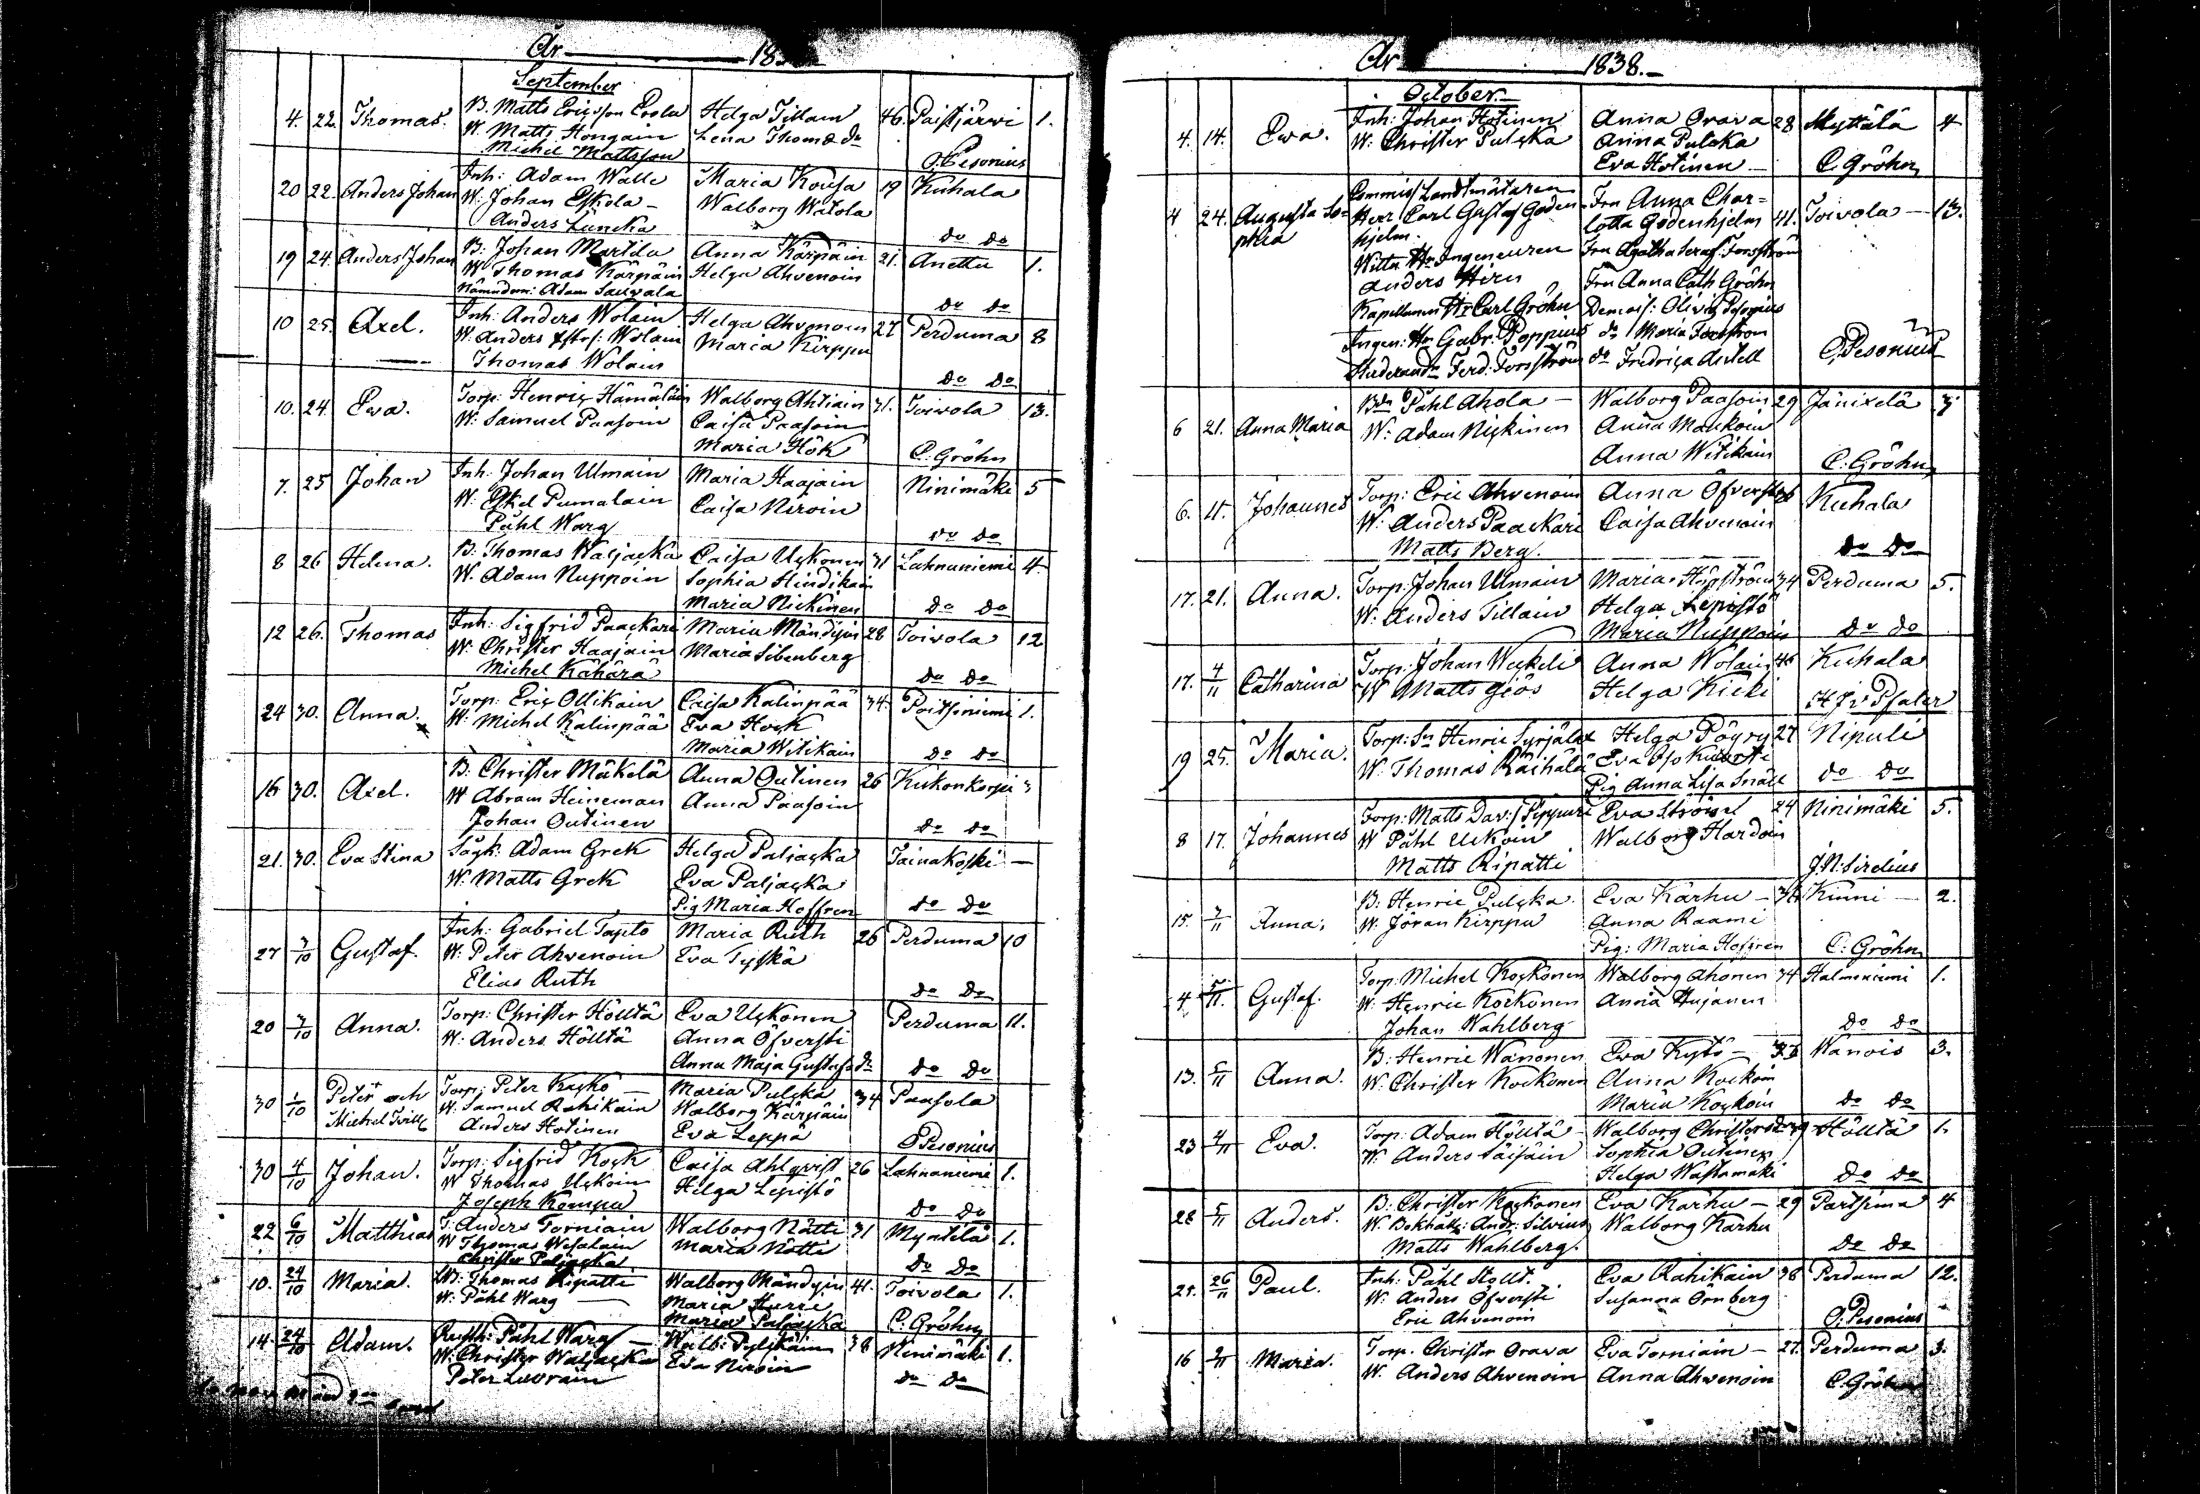 År 18
September
4. 22. Thomas. B. Matts Ericsson Erola Helga Tillain 46. Paistjärwi 1.
W. Matts Hongain Lena Thomæ dr
Michel Mattsson O. Pesonius
20 22. Anders Johan Inh: Adam Walle Maria Kousa 19 Kuhala
W: Johan Eskola Walborg Watola
Anders Luncka do do
19 24. Anders Johan B: Johan Martila Anna Kärpäin 21. Anettu 1.
W Thomas Kärpäin Helga Ahvenoin
Nämndem: Adam do do
10 25. Axel. Inh: Anders Wolain Helga Ahvenoin 27 Perduma 8
W. Anders Wolain Maria Kirppu
Thomas Wolain do do
10. 24. Eva. Torp: Henric Hämäläin Walborg Ahtiain 31. Toivola 13.
W: Samuel Paasoin Caisa Paasoin
Maria Hök C: Gröhn
7. 25 Johan Inh. Johan Ulmain Maria Haajain Ninimäki 5
W: Eskel Pumalain Caisa Niroin
Påhl Warg do do
8 26 Helena. B. Thomas Waljacka Caisa Uckonen 31 Lahnaniemi 4.
W. Adam Nuppoin Sophia Hindikain
Maria Nickinen do do
12 26. Thomas Inh: Sigfrid Paackari Maria Mändyin 28 Toivola 12
W: Christer Haajain Maria Sibenberg
Michel Kähärä do do
24 30. Anna. Torp: Eric Ollikain Caisa Kalinpää 34. Poitsiniemi 1.
W: Michel Kalinpää Eva Hock
Maria Witikain do do
16 30. Axel. B: Christer Mäkelä Anna Outinen 26 Kukonkorpi 3
W Abram Heineman Anna Paasoin
Johan Outinen do do
21. 30. Eva Stina Adam Grek Helga Paljacka Tainakoski
W: Matts Grek Eva Paljacka
Pig Maria Hoffren do do
27 3/10 Gustaf. Inh: Gabriel Tapto Maria Ruth 26 Perduma 10
W: Peter Ahvenoin Eva Tyskä
Elias Ruth do do
20 3/10 Anna. Torp: Christer Hölltä Eva Uckonen Perduma 11.
W: Anders Hölltä Anna Öfversti
Anna Maja Gustafs dr do do
30 1/10 Peter och Torp: Peter Kacko Maria Pulcka 34 Paasola
Michel Tvill: W: Samuel Rahikain Walborg Kärpäin
Anders Hotinen Eva Leppä O Pesonius
30 4/10 Johan. Torp: Sigfrid Kock Caisa Ahlqvist 26 Lahnaniemi 1.
W Thomas Uckoin Helga Lepistö
Joseph Komppa do do
22 6/10 Matthias T: Anders Torniain Walborg Nätti 31 Myntelä 1.
W Thomas Wesalain Maria Nätti
Christer Paljacka do do
10. 24/10 Maria. B: Thomas Ripatti Walborg Mändyin 41. Toivola 1.
W: Påhl Warg Maria Hurri
Maria Paljacka C: Gröhn
14. 24/10 Adam. Påhl Warg Walb: Pylskäin 38 Ninimäki 1.
W. Christer Waljacka Eva Niroin
Peter Luorain do do
År 1838.
October.
4. 14. Ewa. Inh: Johan Hotinen Anna Orava 28 Myttälä 4
W: Christer Pulcka Anna Pulcka
Eva Hotinen C. Gröhn
4 24. Augusta So- Commiss/Landtmätaren Fru Anna Char=
phia Herr Carl Gustaf Goden- lotta Godenhjelm 41. Toivola 13.
hjelm.
Wittn Hr Ingeneuren Fru Agatha Seraf: Forsström
Anders Hirn Fru Anna Cath Gröhn
Kapellanen Hr Carl Gröhn Demois: Olivia Pesonius
Ingen: Hr Gabr: Poppius do Maria Forsström
Studerande Ferd: Forsström do Fredrica Antell O. Pesonius
6 21. Anna Maria Bdn Påhl Ahola Walborg Paasoin 29 Jänixelä 3
W: Adam Nickinen Anna Maukoin
Anna Witikain C. Gröhn
6. 11. Johannes Torp: Eric Ahvenoin Anna Öfversti 26 Kuhala
W: Anders Paackari Caisa Ahvenoin
Matts Berg. do do
17. 21. Anna. Torp: Johan Ulmain Maria Högström 34 Perduma 5.
W: Anders Tillain Helga Lepistö
Maria Nuppoin do do
17. 4/11 Catharina Torp: Johan Weckeli Anna Wolain 46 Kuhala
W Matts Giös Helga Kicki H J v Psaler
19 25. Maria. Torp: Sn Henric Syrjälä Helga Pöyry 27 Nipuli
W: Thomas Räihälä Eva
Pig Anna Lisa Snäll do do
8 17. Johannes Torp: Matts Dav:/Pippuri Eva Ströml 24 Ninimäki 5.
W Påhl Uckoin Walborg Hardoin
Matts Ripatti J.N. Sirelius
15. 3/11 Anna: B: Henric Pulcka Eva Karhu 36 Kinni 2.
W: Jöran Kirppu Anna Raami
Pig: Maria Hoffren C: Gröhn
4 5/11. Gustaf. Torp. Michel Kockonen Walborg Ahonen 34 Halmeniemi 1.
W: Henric Kockonen Anna Hujanen
Johan Wahlberg do do
13. 5/11 Anna. B: Henric Wanonen Eva Kytö Wanois 3.
W. Christer Kockonen Anna Kockoin
Maria Kockoin do do
23 4/11 Eva. Torp: Adam Hölltä Walborg Christersdr 29 Hölltä 1.
W: Anders Täisäin Sophia Outinen
Helga Wastamäki do do
28 5/11 Anders. B: Christer Kockonen Eva Karhu 29 Partsima 4
W. Bokhåll: Andr: Silvius Walborg Karhu
Matts Wahlberg. do do
24. 26/11 Paul. Inh: Påhl Stollt. Eva Rahikain 38 Perduma 12.
W: Anders Öfversti Susanna Örnberg
Eric Ahvenoin O: Pesonius
16 2/11 Maria. Torp. Christer Orava Eva Torniain 27. Perduma 3.
W. Anders Ahvenoin Anna Ahvenoin C. Gröhn